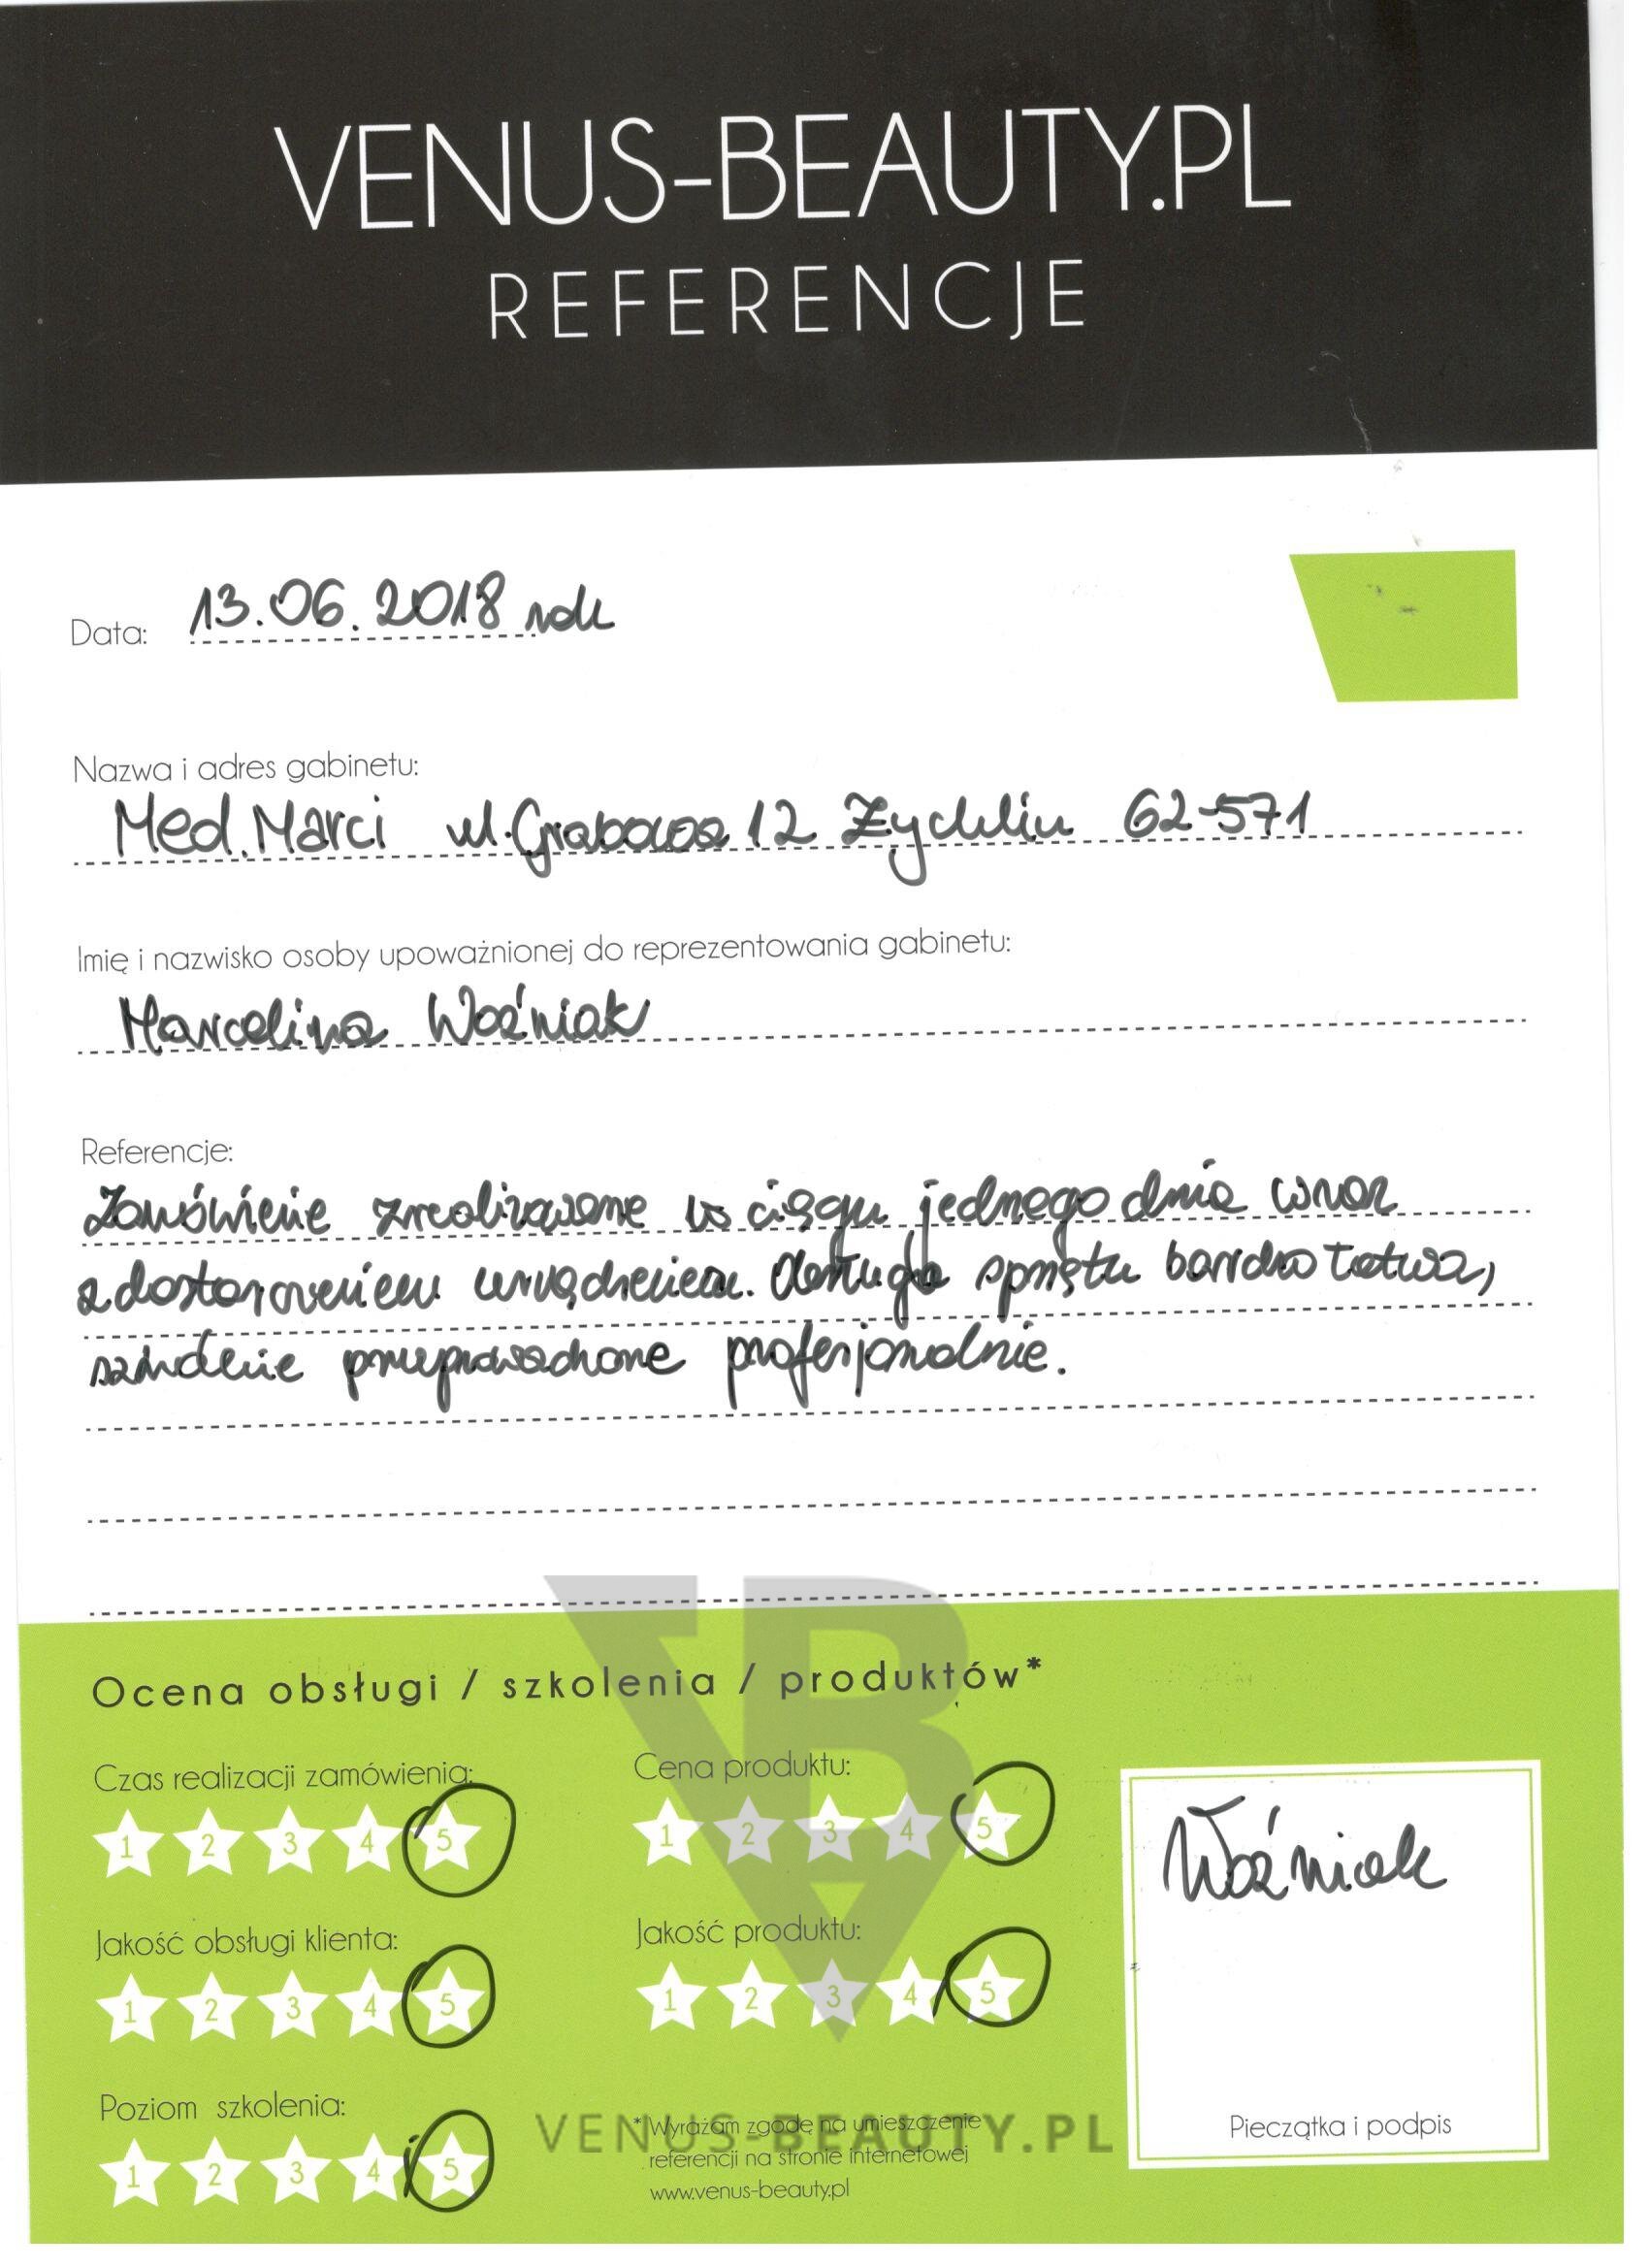 VENUS-BEAUTY.PL
REFERENCJE
Data: 13.06.2018 rok
Nazwa i adres gabinetu:
Med.Marci ul.Grabowa 12 Żychlin 62-571
Imię i nazwisko osoby upoważnionej do reprezentowania gabinetu:
Marcelina Woźniak
Referencje:
Zamówienie zrealizowane w ciągu jednego dnia wraz
z dostarczeniem urządzeniem. Obsługa sprzętu bardzo łatwa,
szkolenie przeprowadzone profesjonalnie.
Ocena obsługi / szkolenia / produktów*
Czas realizacji zamówienia:
1 2 3 4 5
Cena produktu:
1 2 3 4 5
Jakość obsługi klienta:
1 2 3 4 5
Jakość produktu:
1 2 3 4 5
Poziom szkolenia:
1 2 3 4 5
VB
VENUS-BEAUTY.PL
* Wyrażam zgodę na umieszczenie
referencji na stronie internetowej
www.venus-beauty.pl
Woźniak
Pieczątka i podpis